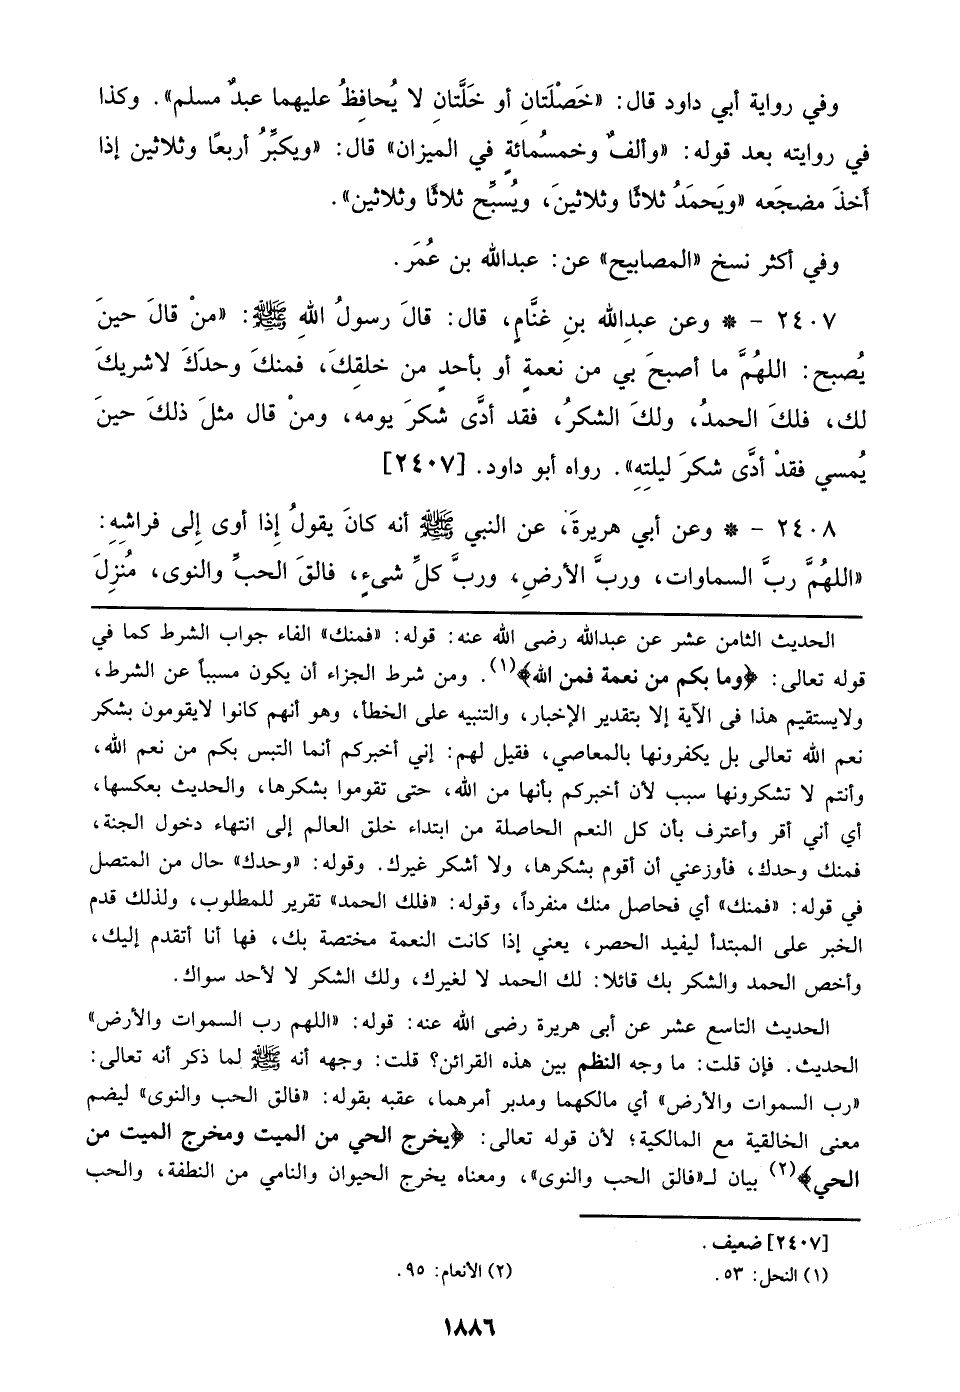 وفي رواية أبي داود قال: «خَصْلَتانِ أو خَلَّتانِ لا يُحافِظُ عليهما عبدٌ مسلم». وكذا
في روايته بعد قوله: «وألفٌ وخمسُمائةٍ في الميزان» قال: «ويكبِّرُ أربعًا وثلاثين إذا
أخذَ مضجَعه «ويَحمَدُ ثلاثًا وثلاثينَ، ويُسبِّح ثلاثًا وثلاثين».
وفي أكثر نسخ «المصابيح» عن: عبدالله بن عُمَر.
٢٤٠٧ - * وعن عبدِالله بنِ غنَّامٍ، قال: قالَ رسولُ اللهِ ﷺ: «منْ قالَ حينَ
يُصبح: اللهُمَّ ما أصبحَ بي من نعمةٍ أو بأحدٍ من خلقِكَ، فمنكَ وحدَكَ لاشريكَ
لك، فلكَ الحمدُ، ولكَ الشكرُ، فقد أدَّى شكرَ يومه، ومنْ قال مثلَ ذلكَ حينَ
يُمسي فقدْ أدَّى شكرَ ليلتِهِ». رواه أبو داود. [٢٤٠٧]
٢٤٠٨ - * وعن أبي هريرةَ، عن النبي ﷺ أنه كانَ يقولُ إذا أوى إلى فراشِهِ:
«اللهُمَّ ربَّ السماوات، وربَّ الأرضِ، وربَّ كلِّ شيءٍ، فالقَ الحبِّ والنوى، مُنزِلَ
الحديث الثامن عشر عن عبدالله رضى الله عنه: قوله: «فمنك» الفاء جواب الشرط كما في
قوله تعالى: ﴿وما بكم من نعمة فمن الله﴾(١). ومن شرط الجزاء أن يكون مسبباً عن الشرط،
ولايستقيم هذا فى الآية إلا بتقدير الإخبار، والتنبيه على الخطأ، وهو أنهم كانوا لايقومون بشكر
نعم الله تعالى بل يكفرونها بالمعاصي، فقيل لهم: إني أخبركم أنما التبس بكم من نعم الله،
وأنتم لا تشكرونها سبب لأن أخبركم بأنها من الله، حتى تقوموا بشكرها، والحديث بعكسها،
أي أني أقر وأعترف بأن كل النعم الحاصلة من ابتداء خلق العالم إلى انتهاء دخول الجنة،
فمنك وحدك، فأوزعني أن أقوم بشكرها، ولا أشكر غيرك. وقوله: «وحدك» حال من المتصل
في قوله: «فمنك» أي فحاصل منك منفرداً، وقوله: «فلك الحمد» تقرير للمطلوب، ولذلك قدم
الخبر على المبتدأ ليفيد الحصر، يعني إذا كانت النعمة مختصة بك، فها أنا أتقدم إليك،
وأخص الحمد والشكر بك قائلا: لك الحمد لا لغيرك، ولك الشكر لا لأحد سواك.
الحديث التاسع عشر عن أبى هريرة رضى الله عنه: قوله: «اللهم رب السموات والأرض»
الحديث. فإن قلت: ما وجه النظم بين هذه القرائن؟ قلت: وجهه أنه ﷺ لما ذكر أنه تعالى:
«رب السموات والأرض» أي مالكهما ومدبر أمرهما، عقبه بقوله: «فالق الحب والنوى» ليضم
معنى الخالقية مع المالكية؛ لأن قوله تعالى: ﴿يخرج الحي من الميت ومخرج الميت من
الحي﴾(٢) بيان لـ«فالق الحب والنوى»، ومعناه يخرج الحيوان والنامي من النطفة، والحب
[٢٤٠٧] ضعيف.
(١) النحل: ٥٣. (٢) الأنعام: ٩٥.
١٨٨٦